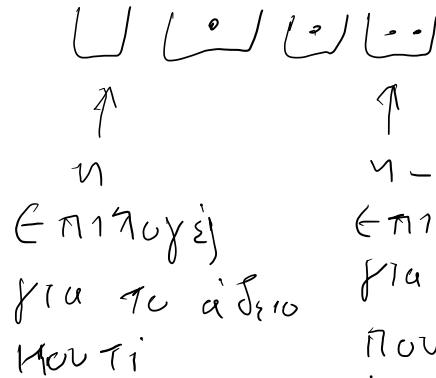 n
επιλογές
για το άδειο
κουτί
n -
επι
για
που